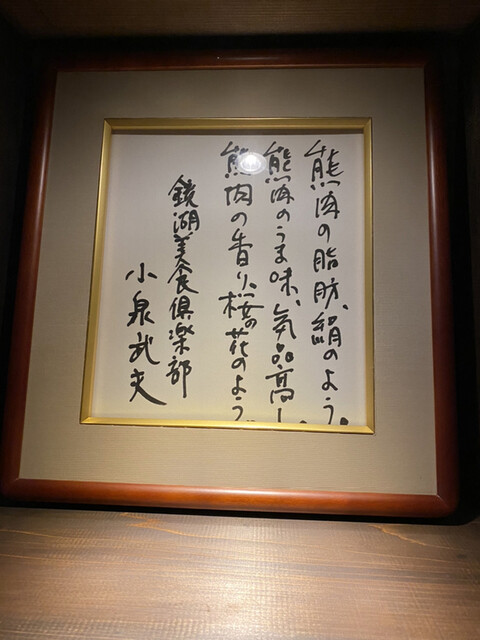 熊肉の脂肪、絹のよう。
熊肉のうま味、気品高し、
熊肉の香り、桜の花のよう。
鏡湖美食倶楽部
小泉武夫